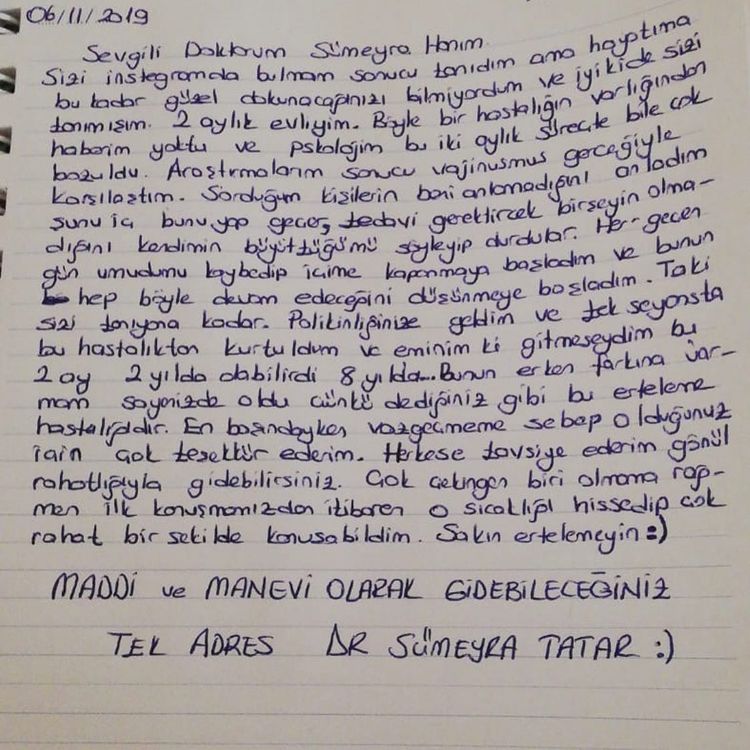 06/11/2019
Sevgili Doktorum Sümeyra Hanım
Sizi instegramda bulmam sonucu tanıdım ama hayatıma
bu kadar güzel dokunacağınızı bilmiyordum ve iyikide sizi
tanımışım. 2 aylık evliyim. Böyle bir hastalığın varlığından
haberim yoktu ve pskolojim bu iki aylık süreçte bile çok
bozuldu. Araştırmalarım sonucu vajinusmus gerçeğiyle
karşılaştım. Sorduğum kişilerin beni anlamadığını anladım
şunu iç bunu yap geçer, tedavi gerektircek birşeyin olma-
dığını kendimin büyüttüğümü söyleyip durdular. Her geçen
gün umudumu kaybedip içime kapanmaya başladım ve bunun
hep böyle devam edeceğini düşünmeye başladım. Taki
sizi tanıyana kadar. Polikinliğinize geldim ve tek seyansta
bu hastalıktan kurtuldum ve eminim ki gitmeseydim bu
2 ay 2 yılda olabilirdi 8 yılda.. Bunun erken farkına var-
mam sayenizde oldu çünkü dediğiniz gibi bu erteleme
hastalığıdır. En başındayken vazgeçmeme sebep olduğunuz
için çok teşekkür ederim. Herkese tavsiye ederim gönül
rahatlığıyla gidebilirsiniz. Çok çekingen biri olmama rağ-
men ilk konuşmamızdan itibaren o sıcaklığı hissedip çok
rahat bir şekilde konuşabildim. Sakın ertelemeyin :)
MADDİ ve MANEVİ OLARAK GİDEBİLECEĞİNİZ
TEK ADRES DR SÜMEYRA TATAR :)